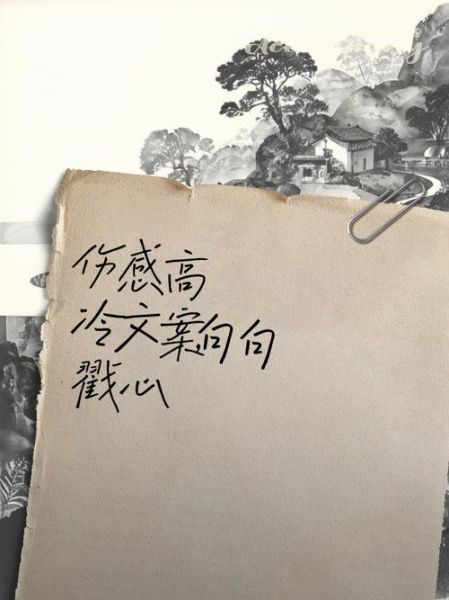 伤感高
冷文案句句
戳心